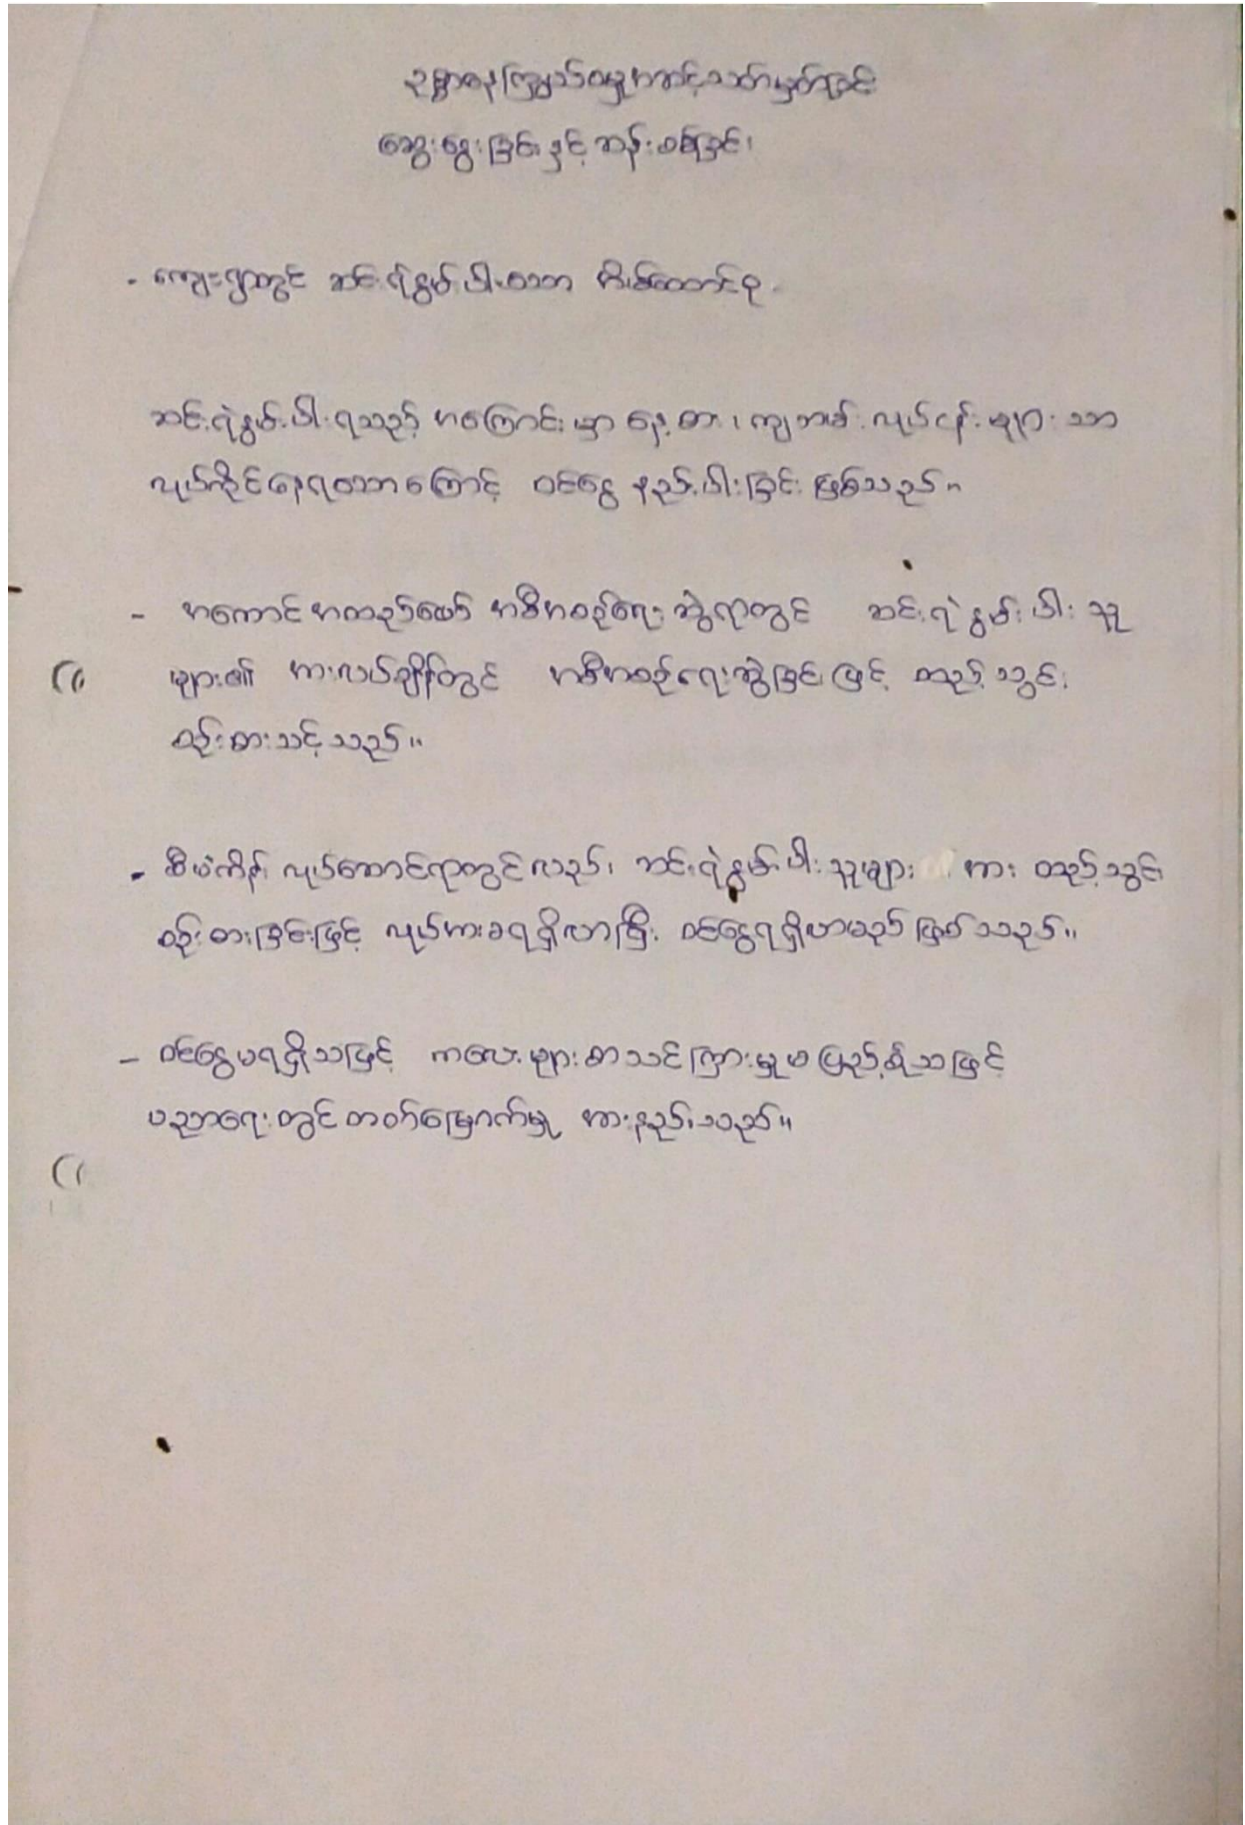 ဥစ္စာဓနကြွယ်ဝမှုအဆင့်သတ်မှတ်ခြင်း
ဆွေးနွေးခြင်းနှင့် ဆန်းစစ်ခြင်း၊
- ကျေးရွာတွင် ဆင်းရဲနွမ်းပါးသော အိမ်ထောင်စု -
ဆင်းရဲနွမ်းပါးရသည့် အကြောင်းမှာ နေ့စား၊ ကျဘမ်းလုပ်ငန်းများသာ
လုပ်ကိုင်နေရသောကြောင့် ဝင်ငွေ နည်းပါးခြင်း ဖြစ်သည်။
- အကောင်အထည်ဖော် အစီအစဉ်ရေးဆွဲရာတွင် ဆင်းရဲနွမ်းပါးသူ
များ၏ အားလပ်ချိန်တွင် အစီအစဉ်ရေးဆွဲခြင်းဖြင့် ထည့်သွင်း
စဉ်းစားသင့်သည်။
- စီမံကိန်း လုပ်ဆောင်ရာတွင်လည်း ဆင်းရဲနွမ်းပါးသူများ အား ထည့်သွင်း
စဉ်းစားခြင်းဖြင့် လုပ်အားခရရှိလာပြီး ဝင်ငွေရရှိလာမည်ဖြစ်သည်။
- ဝင်ငွေမရရှိသဖြင့် ကလေးများစာသင်ကြားမှုမပြည့်စုံသဖြင့်
ပညာရေးတွင်တတ်မြောက်မှု အားနည်းသည်။